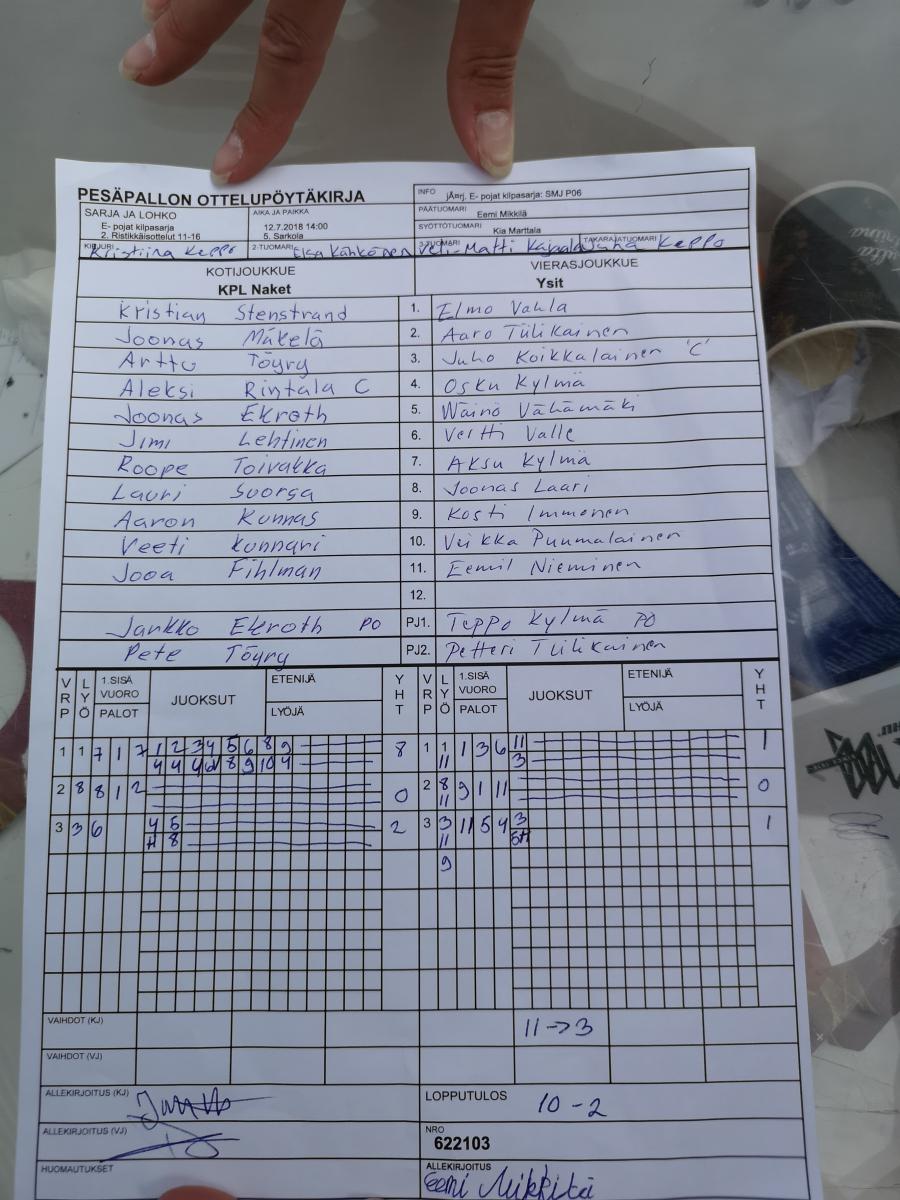 PESÄPALLON OTTELUPÖYTÄKIRJA
INFO jÄnrj. E- pojat kilpasarja: SMJ P06
SARJA JA LOHKO
E- pojat kilpasarja
2. Ristikkäisottelut 11-16
AIKA JA PAIKKA
12.7.2018 14:00
5. Sarkola
PÄÄTUOMARI Eemi Mikkilä
SYÖTTÖTUOMARI Kia Marttala
Kristiina Keppo 2-TUOMARI Elsa Kähkönen Veli-Matti TAKARAJATUOMARI Keppo
KOTIJOUKKUE
KPL Naket
VIERASJOUKKUE
Ysit
Kristian Stenstrand 1. Elmo Vahla
Joonas Mäkelä 2. Aaro Tiilikainen
Arttu Töyry 3. Juho Koikkalainen 'C'
Aleksi Rintala C 4. Osku Kylmä
Joonas Ekroth 5. Wäinö Vähämäki
Jimi Lehtinen 6. Vertti Valle
Roope Toivakka 7. Aksu Kylmä
Lauri Suorsa 8. Joonas Laari
Aaron Kunnas 9. Kosti Immonen
Veeti Kunnari 10. Veikka Puumalainen
Jooa Fihlman 11. Eemil Nieminen
12.
Jarkko Ekroth PO PJ1. Teppo Kylmä PO
Pete Töyry PJ2. Petteri Tiilikainen
VRP LYÖ 1.SISÄ VUORO PALOT JUOKSUT ETENIJÄ LYÖJÄ YHT VRP LYÖ 1.SISÄ VUORO PALOT JUOKSUT ETENIJÄ LYÖJÄ YHT
1 1 7 1 7 1 2 3 4 5 6 8 9 8 1 1 1 3 6 11 1
4 4 4 8 9 10 4 11 3
2 8 8 1 2 0 2 8 9 1 11 0
11
3 3 6 4 5 2 3 3 11 5 4 3 1
H 8 11 5H
9
VAIHDOT (KJ) 11->3
VAIHDOT (VJ)
ALLEKIRJOITUS (KJ)
LOPPUTULOS 10-2
ALLEKIRJOITUS (VJ)
NRO
622103
HUOMAUTUKSET
ALLEKIRJOITUS
Eemi Mikkilä